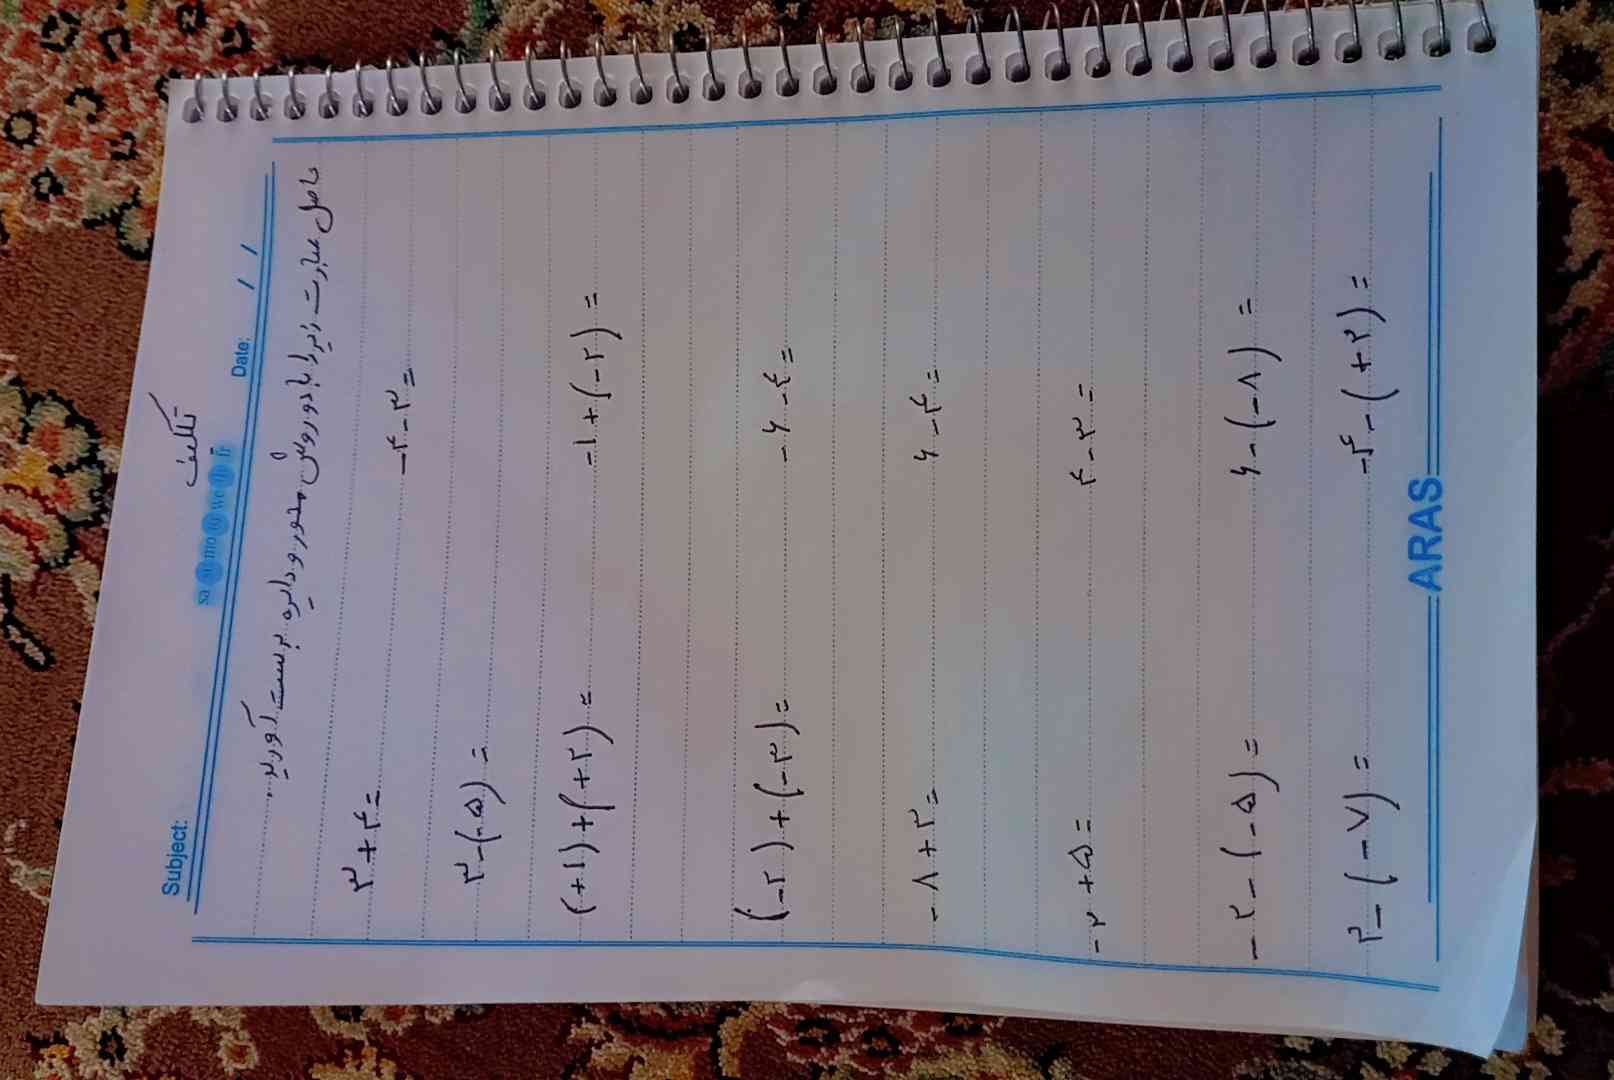 تکلیف
Subject:
sa su mo tu we th fr
Date: / /
حاصل عبارت زیر را با دو روش محور و دایره بدست آورید.
۳+۴=
-۴-۳=
۳-(-۵)=
(+۱)+(+۲)=
-۱+(-۲)=
(-۲)+(-۳)=
-۶-۴=
-۸+۲=
۶-۴=
-۲+۵=
۴-۳=
-۲-(-۵)=
۶-(-۸)=
۳-(-۷)=
-۴-(+۲)=
ARAS